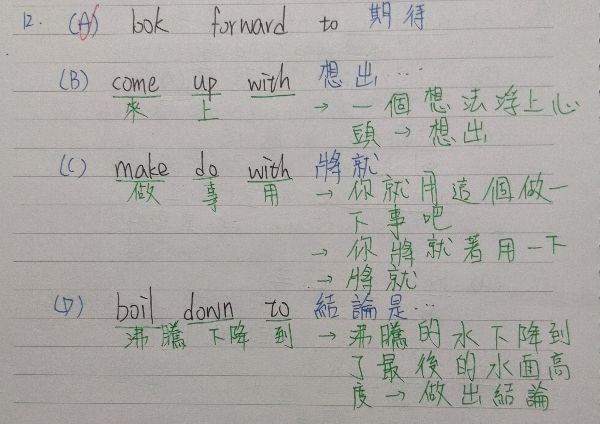 12. (A) look forward to 期待
(B) come up with 想出…
來 上 → 一個想法浮上心
頭 → 想出
(C) make do with 將就
做 事 用 → 你就用這個做一
下事吧
→ 你將就著用一下
→ 將就
(D) boil down to 結論是…
沸騰 下降 到 → 沸騰的水下降到
了最後的水面高
度 → 做出結論